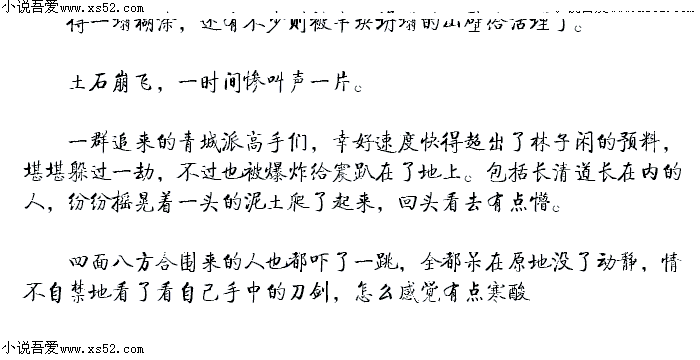 小说吾爱www.xs52.com
得一塌糊涂，还有不少则被半块坍塌的山壁给活埋了。
土石崩飞，一时间惨叫声一片。
一群追来的青城派高手们，幸好速度快得超出了林子闲的预料，
堪堪躲过一劫，不过也被爆炸给震趴在了地上。包括长清道长在内的
人，纷纷摇晃着一头的泥土爬了起来，回头看去有点懵。
四面八方合围来的人也都吓了一跳，全都呆在原地没了动静，情
不自禁地看了看自己手中的刀剑，怎么感觉有点寒酸
小说吾爱www.xs52.com